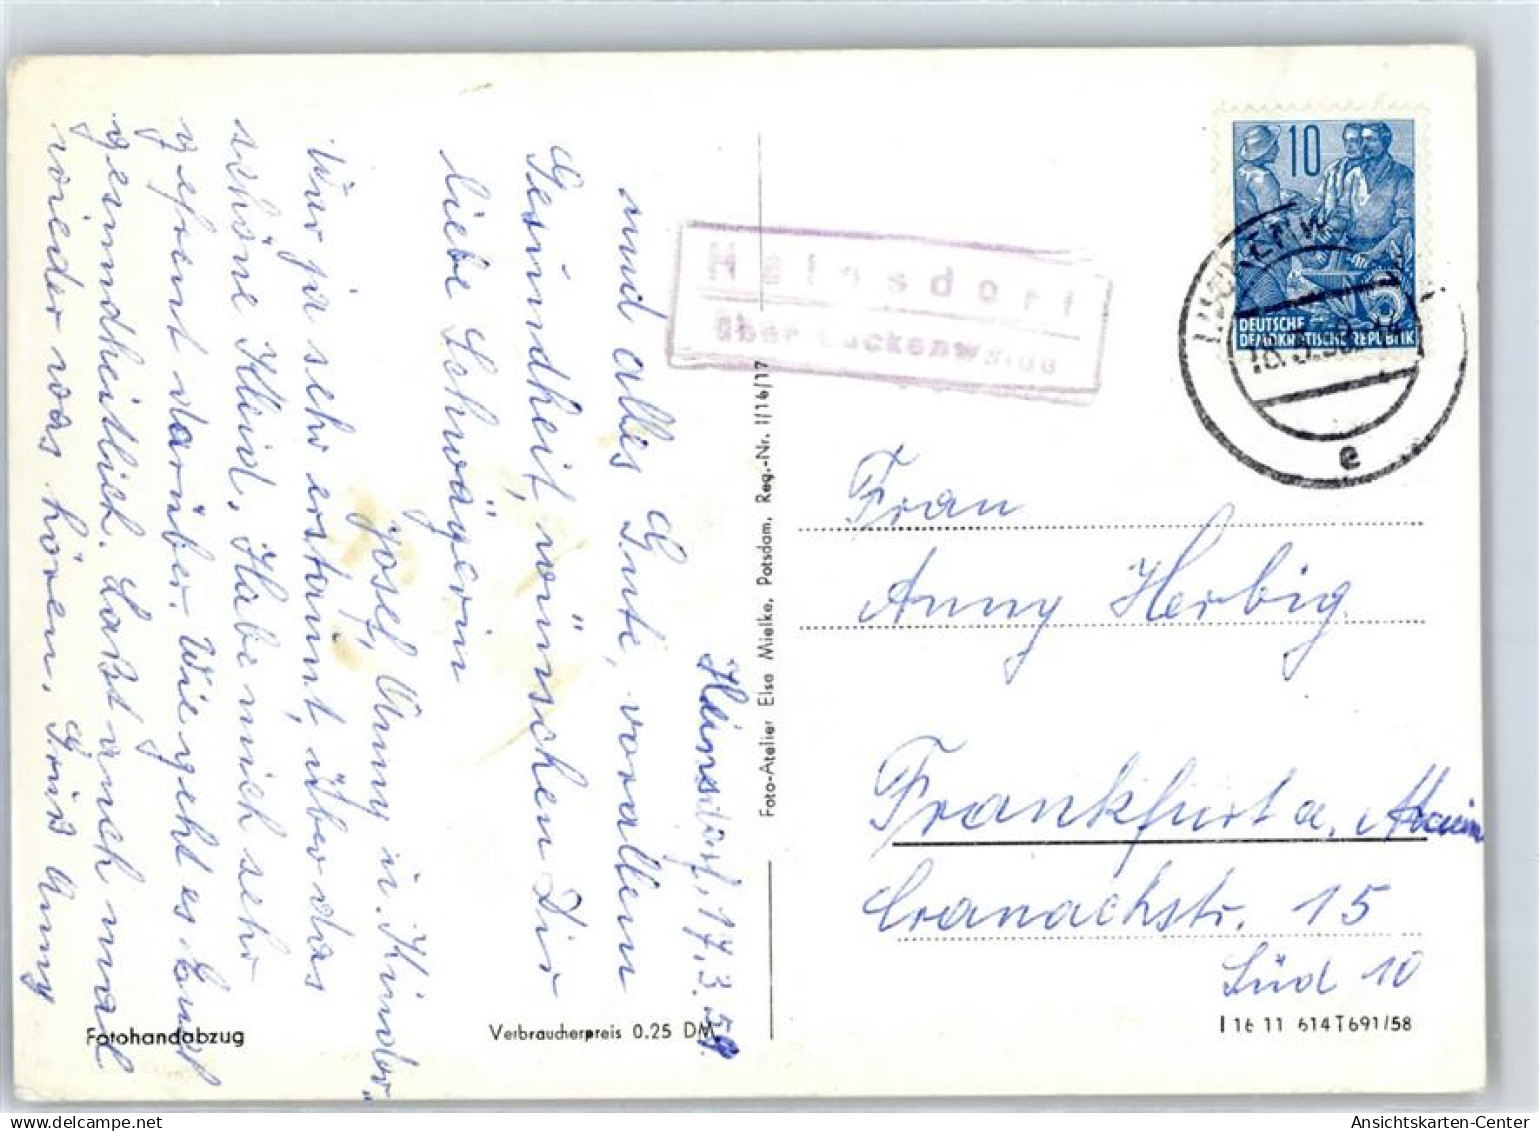 Heinsdorf, 17.3.59.
und alles Gute, vorallem
Gesundheit, wünschen Dir
liebe Schwägerin
Josef, Anny u. Kinder
War ja sehr erstaunt, über das
schöne Kleid. Habe mich sehr
gefreut darüber. Wie geht es Euch
gesundheitlich. Laßt auch mal
wieder was hören. Gruß Anny
Fotohandabzug
Verbraucherpreis 0.25 DM
Foto-Atelier Elsa Mielke, Potsdam, Reg.-Nr. I/16/17
Heinsdorf
über Luckenwalde
10
DEUTSCHE
DEMOKRATISCHE REPUBLIK
e
Frau
Anny Herbig
Frankfurt a. Main
Cranachstr. 15
Süd 10
I 16 11 614 T 691/58
Ansichtskarten-Center